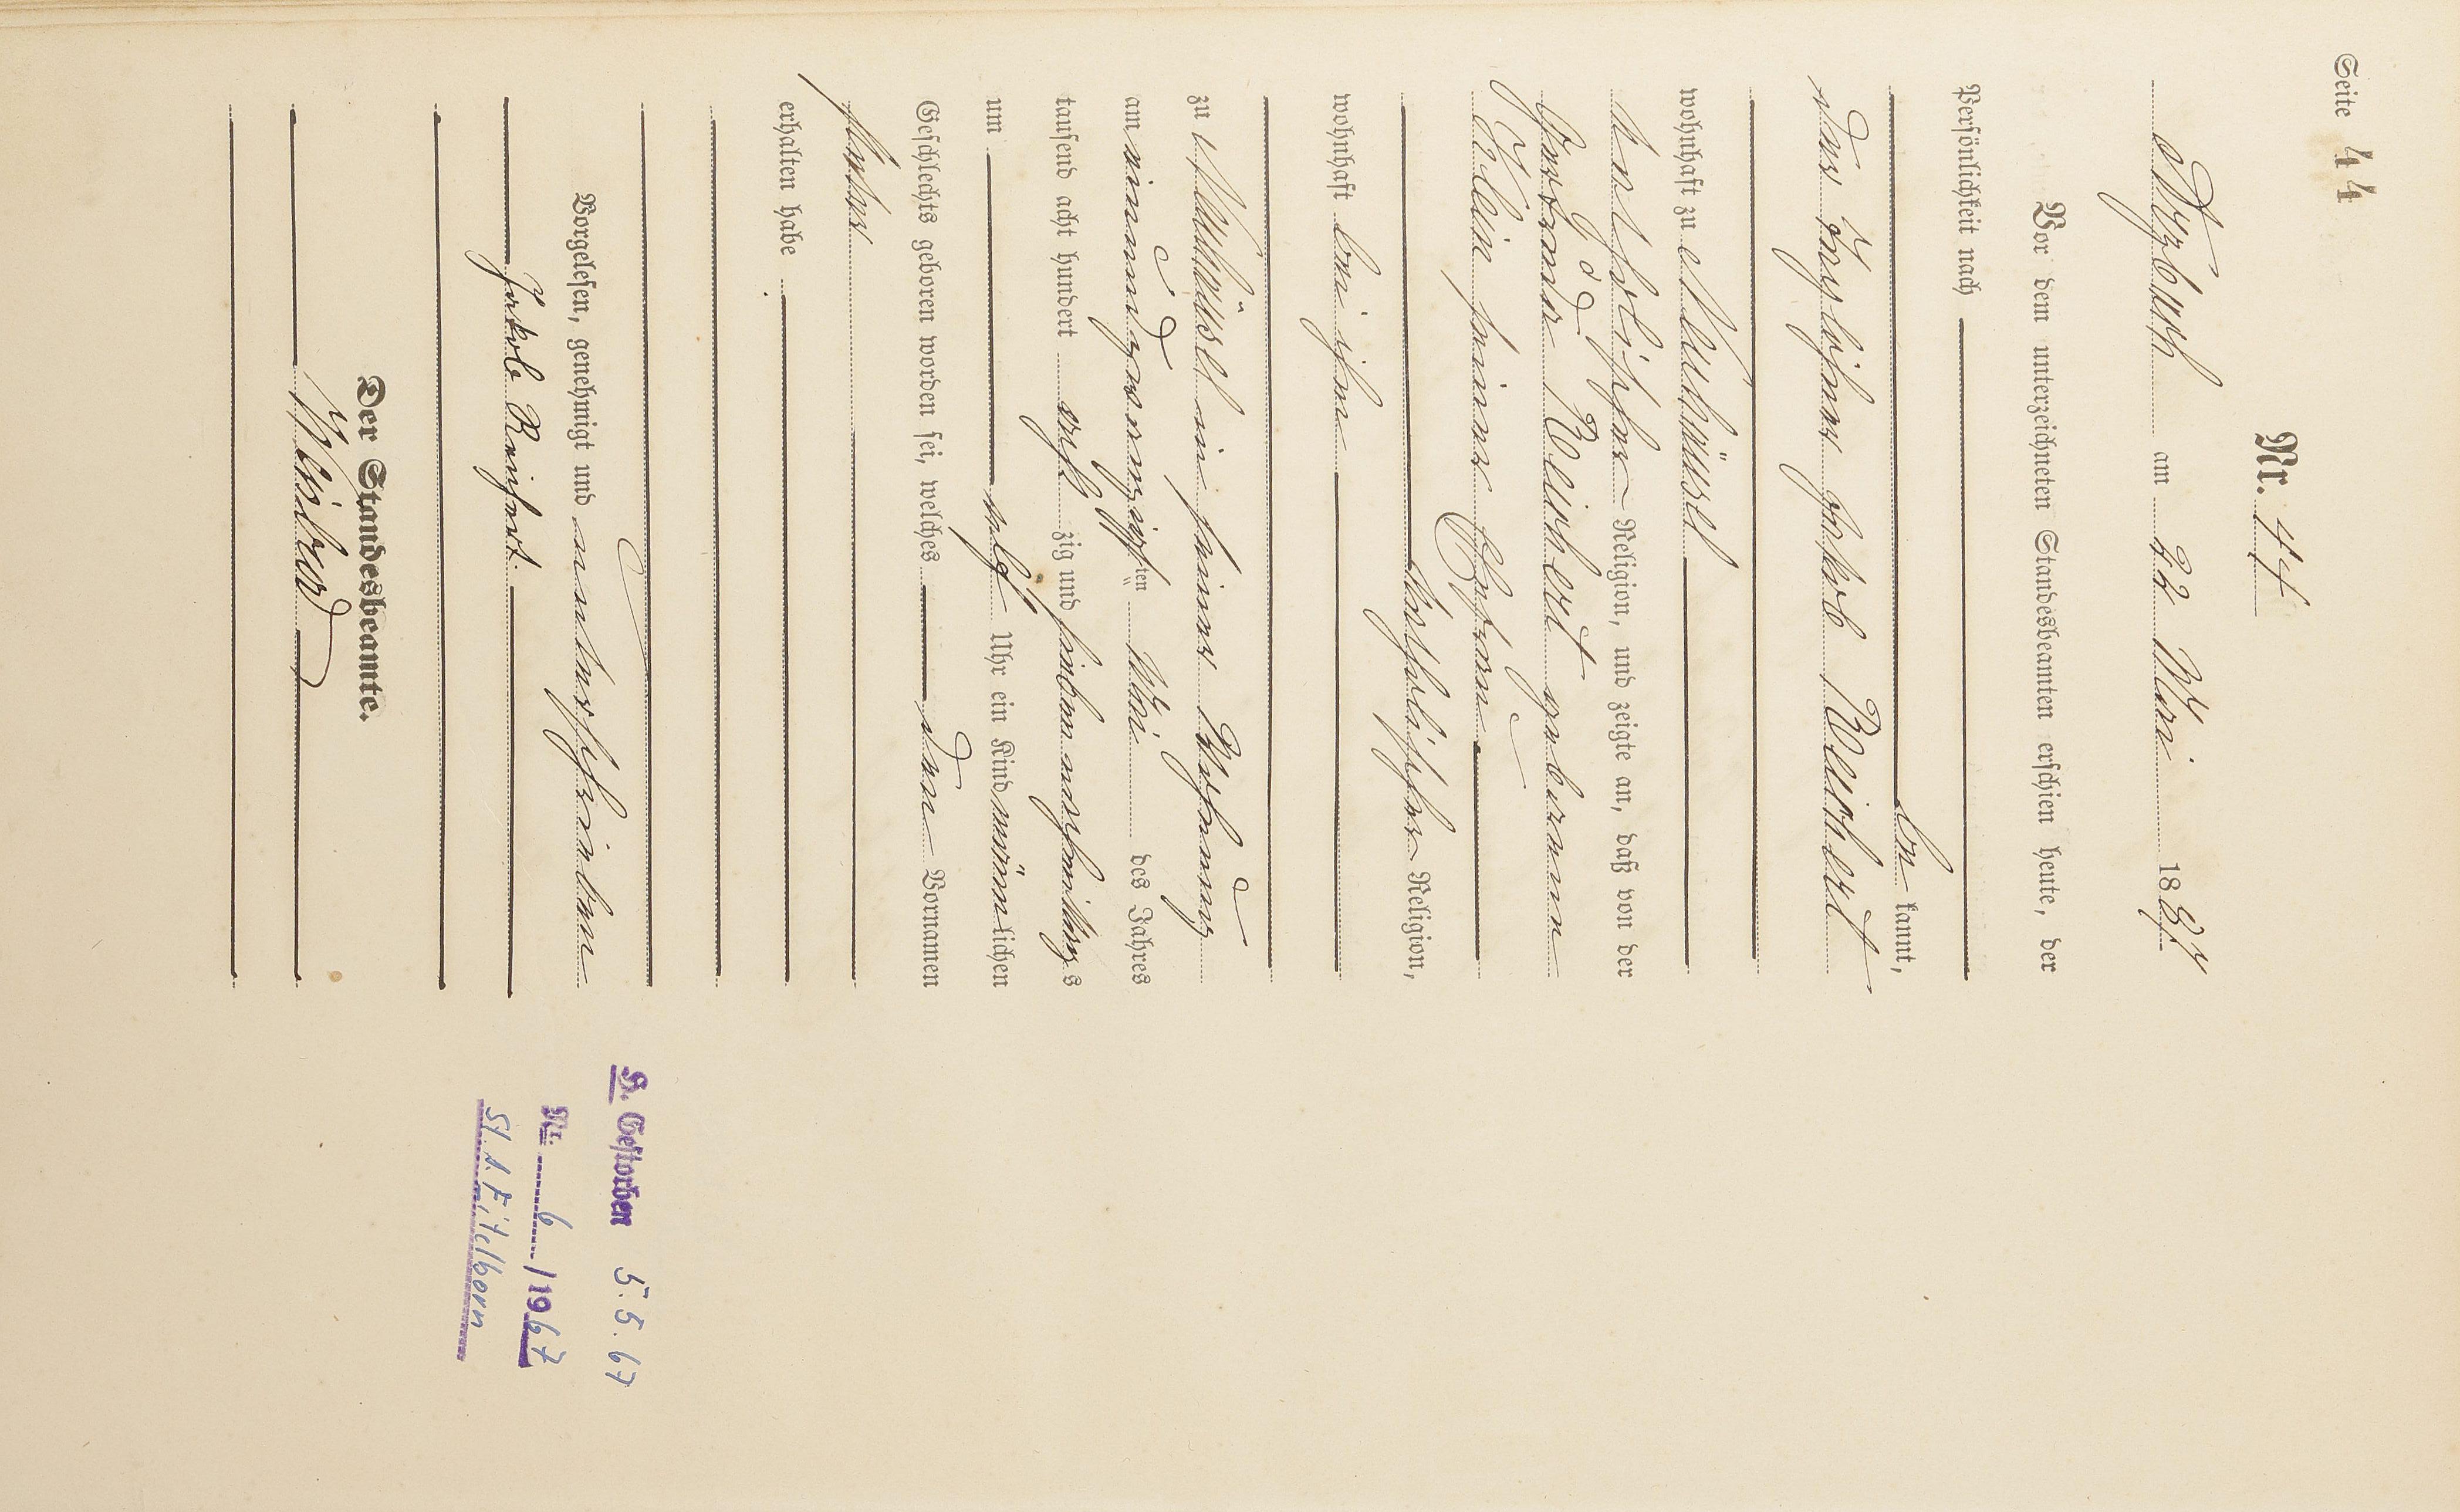 Seite 44
Nr. 44
Arzbach am 22 Mai 1887
Vor dem unterzeichneten Standesbeamten erschien heute, der
Persönlichkeit nach
be kannt,
der Tagelöhner Jakob Reichert
wohnhaft zu Neuhäusel
katholischer Religion, und zeigte an, daß von der
Reichert geborenen
Klein seiner Ehefrau
katholischer Religion,
wohnhaft bei ihm
zu Neuhäusel in seiner Wohnung
am einundzwanzigsten Mai des Jahres
tausend acht hundert acht zig und sieben nachmittags
um elf Uhr ein Kind männlichen
Geschlechts geboren worden sei, welches den Vornamen
Peter
erhalten habe
Vorgelesen, genehmigt und unterschrieben
Jakob Reichert
Der Standesbeamte.
G. Gestorben 5.5.67
Nr. 6/1967
St.A. Eitelborn